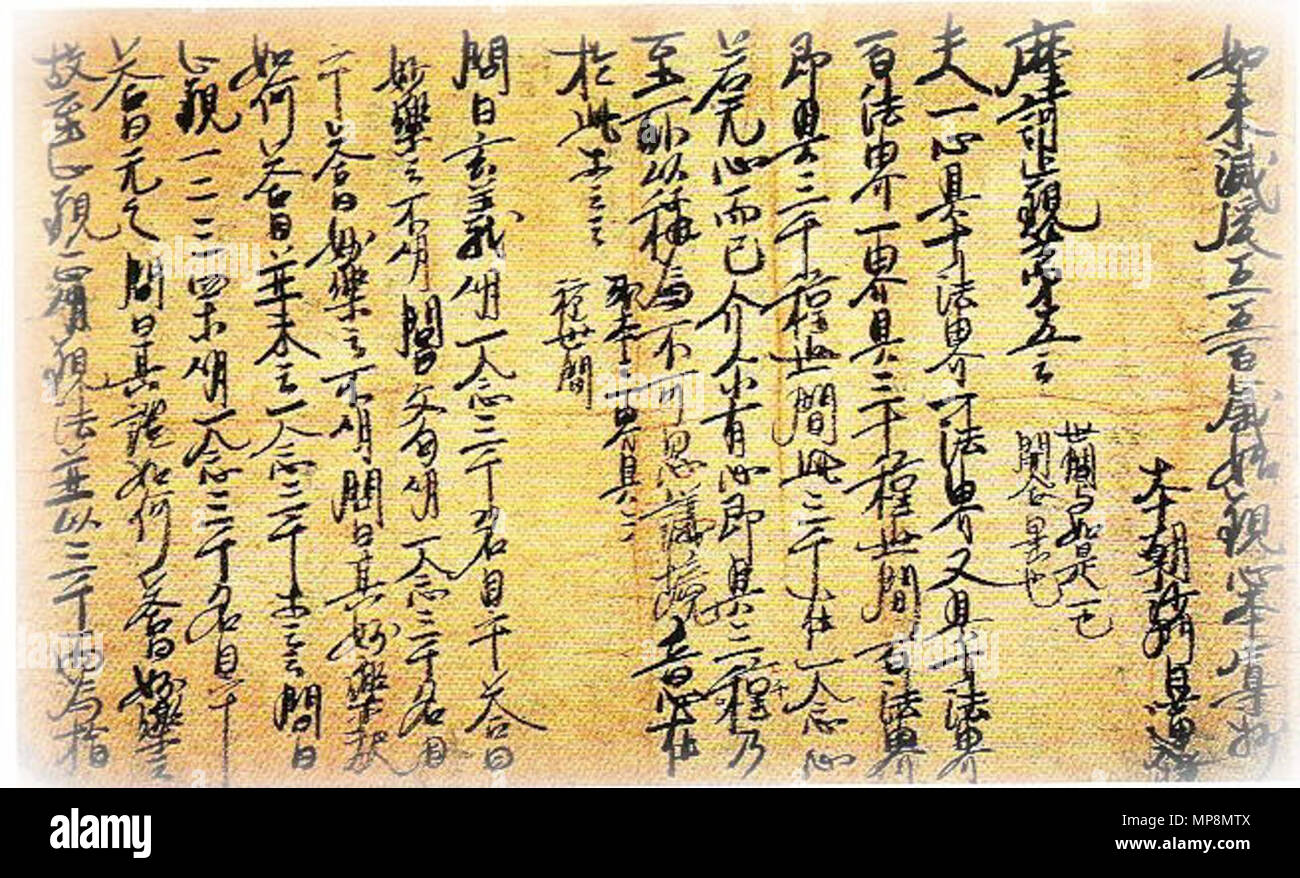 如来滅後五五百歳始観心本尊抄
本朝沙門日蓮撰
摩訶止観第五云
世間与如是一也
開合異也
夫一心具十法界一法界又具十法界
百法界一界具三十種世間百法界
即具三千種世間此三千在一念心
若无心而已介尓有心即具三千種乃
至所以称為不可思議境意在
於此等云云
或本云一界具三
種世間
問曰玄義明一念三千名目乎答曰
妙楽云不明問曰文句明一念三千名目
乎答曰妙楽云不明問曰其妙楽釈
如何答曰並未云一念三千等云云問曰
止観一二三四等明一念三千名目乎
答曰无之問曰其証如何答曰妙楽云
故至止観正明観法並以三千而為指
alamy
MP8MTX
www.alamy.com